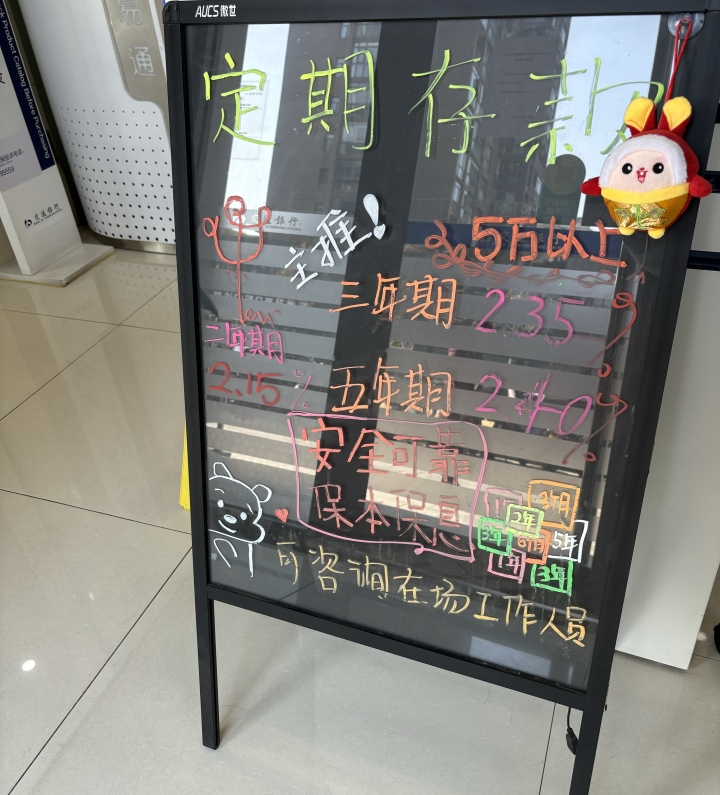 AUCS 傲世
易
通
k Product Catalog Before Purchasing
95559
交通银行
定期存款
银行
主推!
5万以上
三年期 2.35%
二年期
2.15%
五年期 2.40%
安全可靠
保本保息
3个月
2年
5年
6个月
1年
3年
可咨询在场工作人员